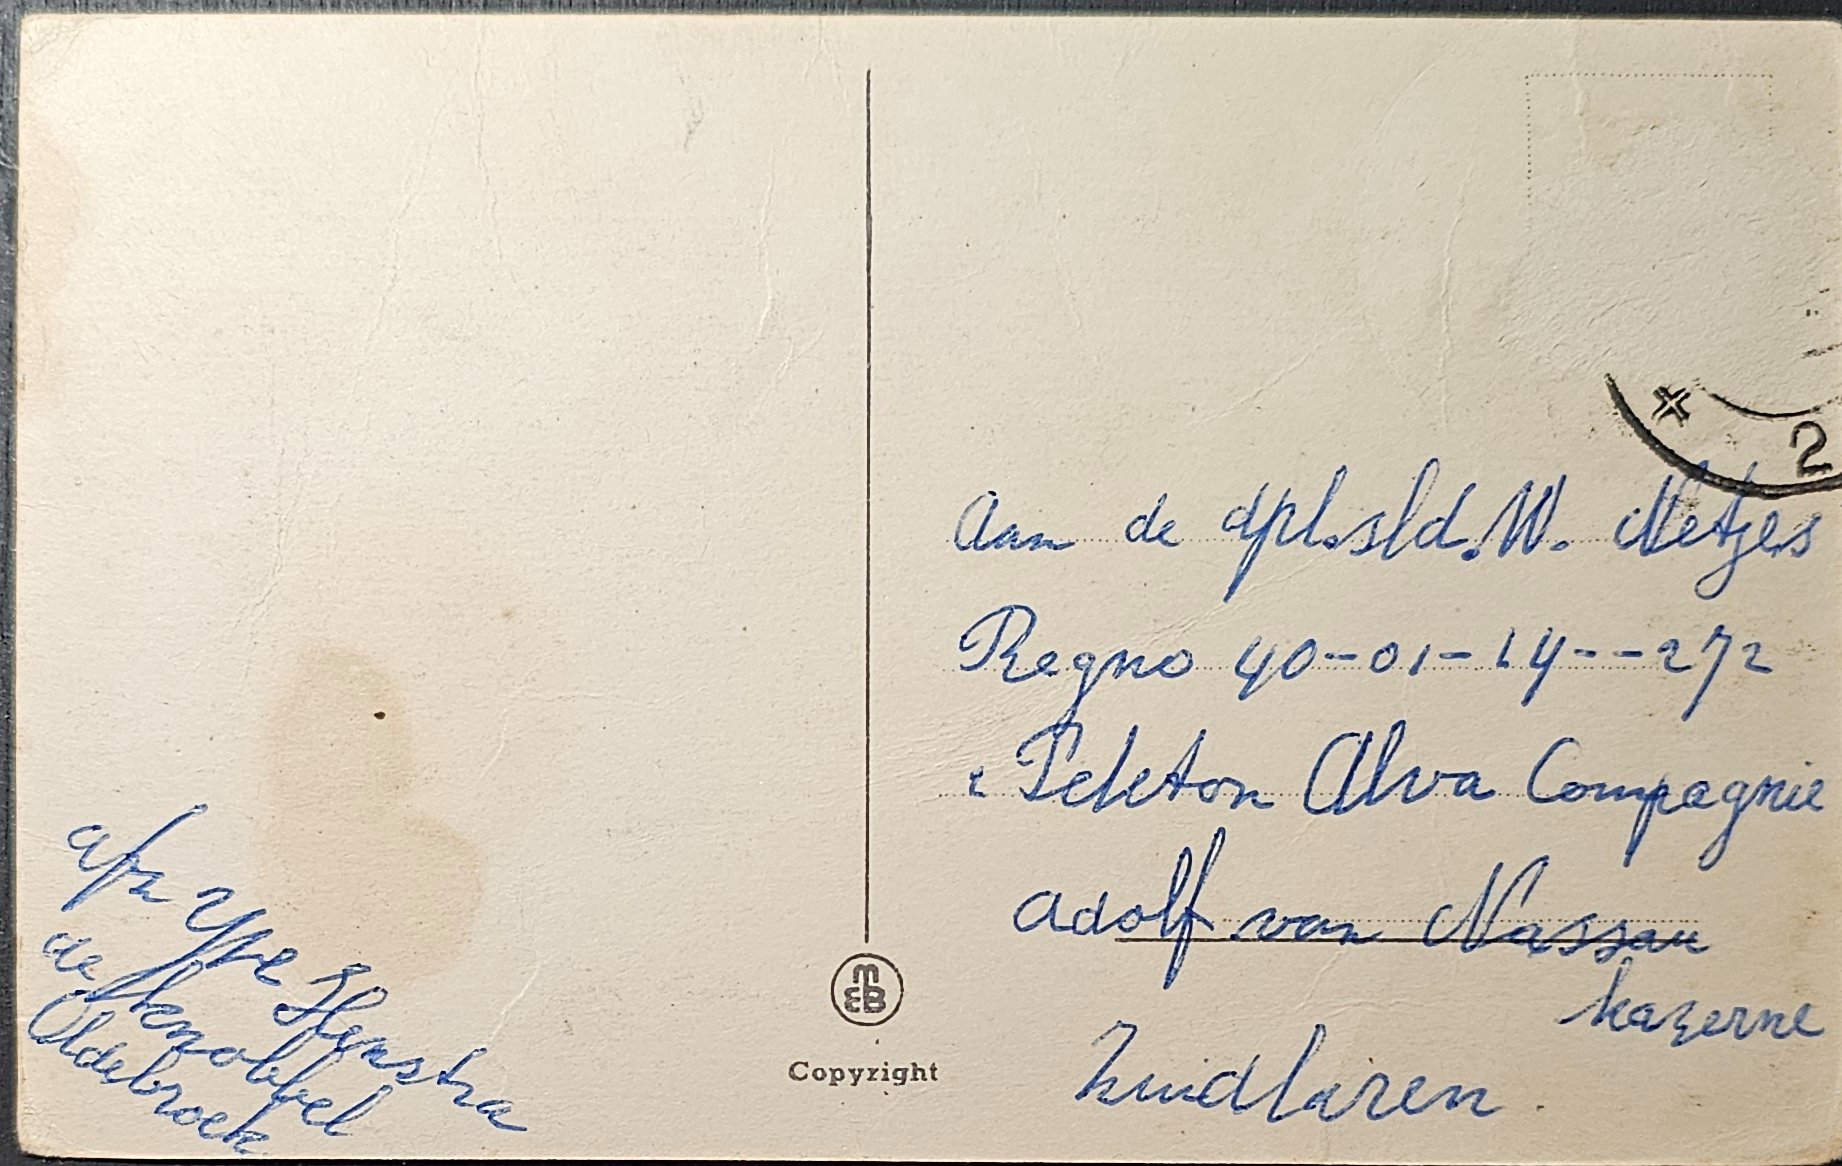 2
Aan de dpl.sld. W. Metzes
Regno 40-01-14--272
1 Peleton Alva Compagnie
Adolf van Nassau
kazerne
Zuidlaren
afz Ype Hijnstra
de Knobbel
Oldebroek
MEB
Copyright